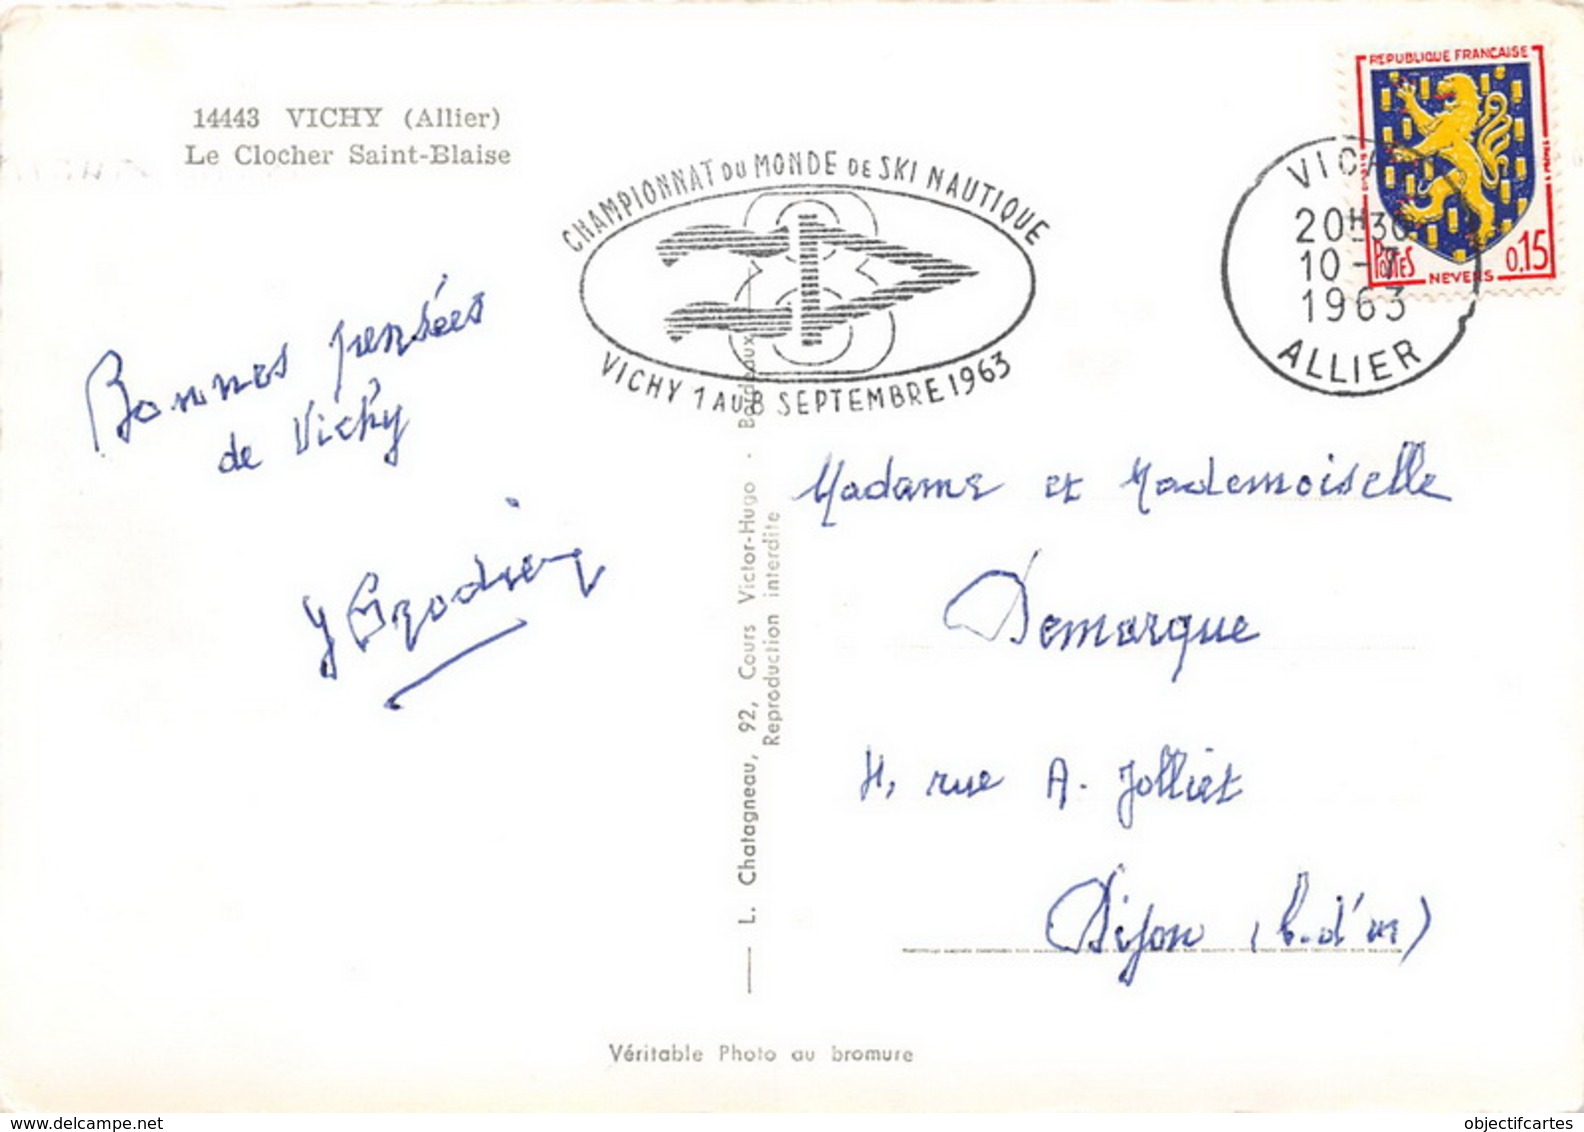 14443 VICHY (Allier)
Le Clocher Saint-Blaise
CHAMPIONNAT DU MONDE DE SKI NAUTIQUE
VICHY 1 AU 8 SEPTEMBRE 1963
REPUBLIQUE FRANÇAISE
POSTES
NEVERS
0,15
20H30
10-7
1963
ALLIER
Bonnes pensées
de Vichy
Madame et Mademoiselle
Demarque
rue A. Jolliet
Dijon
L. Chatagneau, 92, Cours Victor-Hugo - Bordeaux
Reproduction interdite
Véritable Photo au bromure
objectifcartes